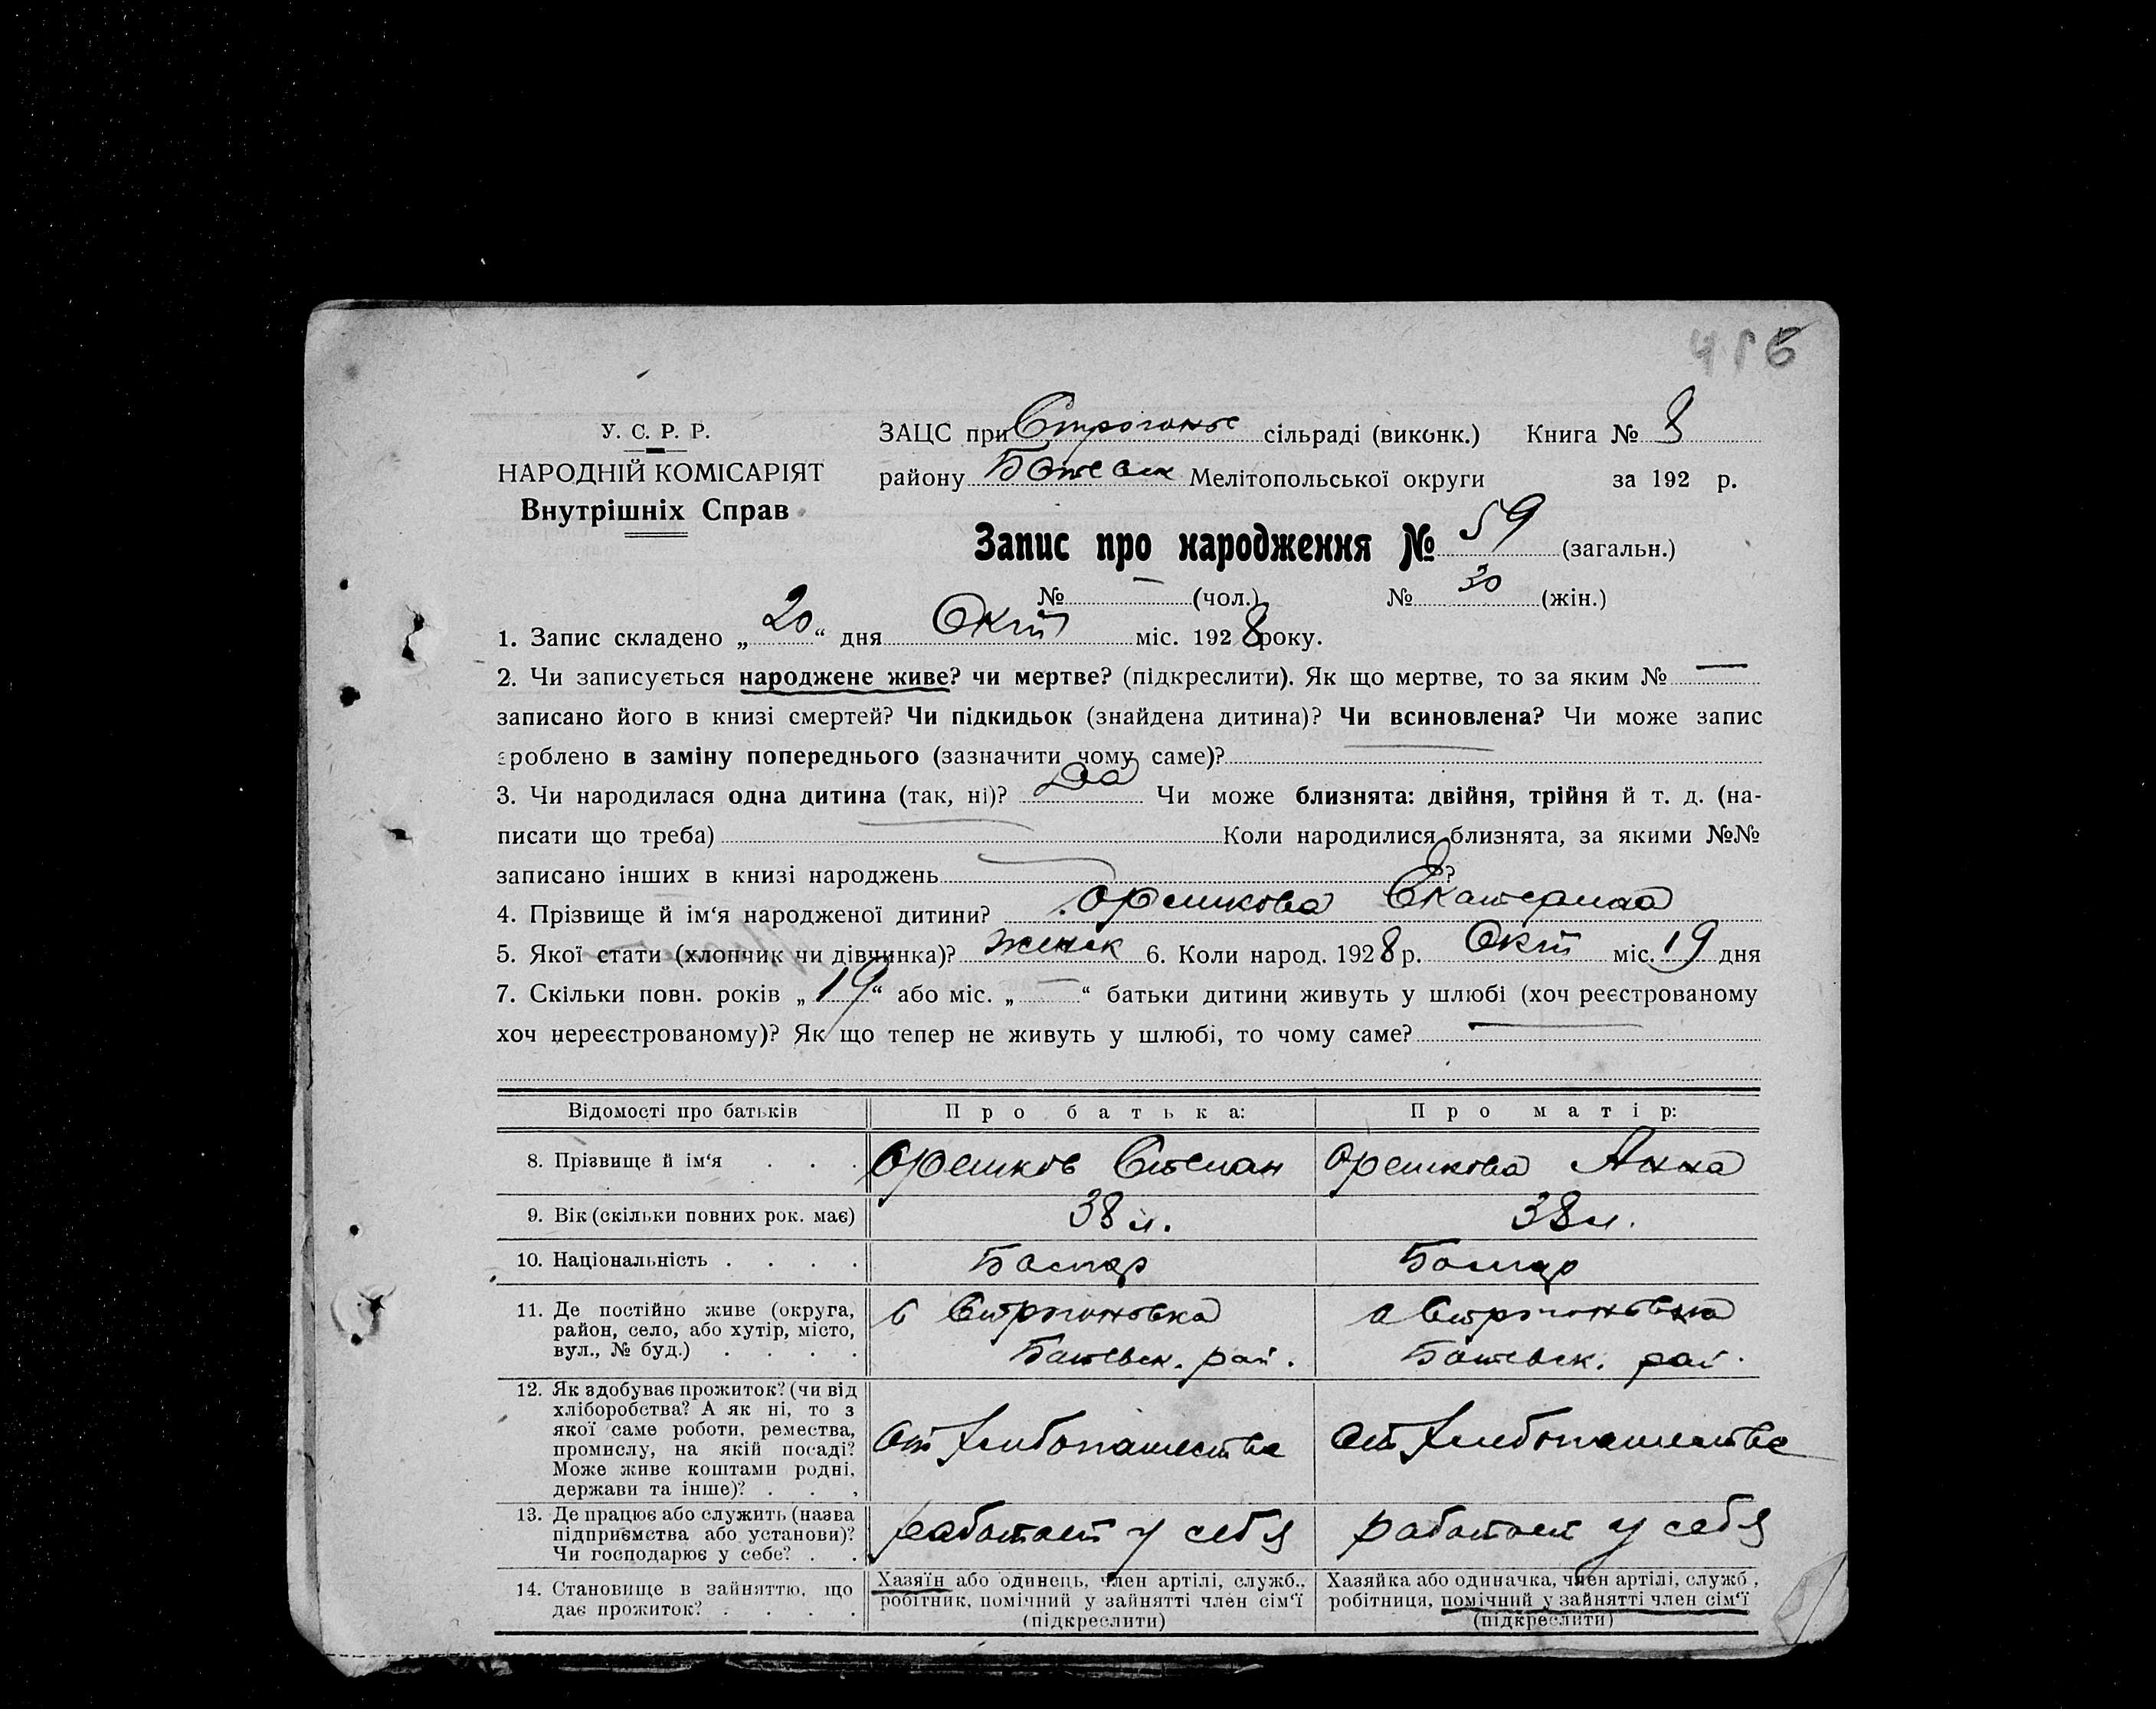 416
У. С. Р. Р.
НАРОДНІЙ КОМІСАРІЯТ
Внутрішніх Справ
ЗАЦС при Строгонов сільраді (виконк.) Книга № 8
району Ботевск Мелітопольської округи за 192 р.
Запис про народження № 59 (загальн.)
№ — (чол.) № 30 (жін.)
1. Запис складено „20“ дня Окт міс. 1928 року.
2. Чи записується народжене живе? чи мертве? (підкреслити). Як що мертве, то за яким № —
записано його в книзі смертей? Чи підкидьок (знайдена дитина)? Чи всиновлена? Чи може запис
зроблено в заміну попереднього (зазначити чому саме)?
3. Чи народилася одна дитина (так, ні)? Да Чи може близнята: двійня, трійня й т. д. (на-
писати що треба) Коли народилися близнята, за якими №№
записано інших в книзі народжень ?
4. Прізвище й ім‘я народженої дитини? Орешкова Екатерина
5. Якої стати (хлопчик чи дівчинка)? женск 6. Коли народ. 1928 р. Окт міс. 19 дня
7. Скільки повн. років „19“ або міс. „—“ батьки дитини живуть у шлюбі (хоч реєстрованому
хоч нереєстрованому)? Як що тепер не живуть у шлюбі, то чому саме? —
Відомості про батьків Про батька: Про матір:
8. Прізвище й ім‘я . . . Орешков Степан Орешкова Анна
9. Вік (скільки повних рок. має) 38 л. 38 л.
10. Національність . . . . Болгар Болгар
11. Де постійно живе (округа,
район, село, або хутір, місто,
вул., № буд.) . . . .
с Строгоновка
Ботевск. рай.
с Строгоновка
Ботевск. рай.
12. Як здобуває прожиток? (чи від
хліборобства? А як ні, то з
якої саме роботи, ремества,
промислу, на якій посаді?
Може живе коштами родні,
держави та інше)? . . ,
От хлибопашества
От хлебопашества
13. Де працює або служить (назва
підприємства або установи)?
Чи господарює у себе? . .
работает у себя
работает у себя
14. Становище в зайняттю, що
дає прожиток? . . . .
Хазяїн або одинець, член артілі, служб.,
робітник, помічний у зайнятті член сім‘ї
(підкреслити)
Хазяйка або одиначка, член артілі, служб.,
робітниця, помічний у зайнятті член сім‘ї
(підкреслити)